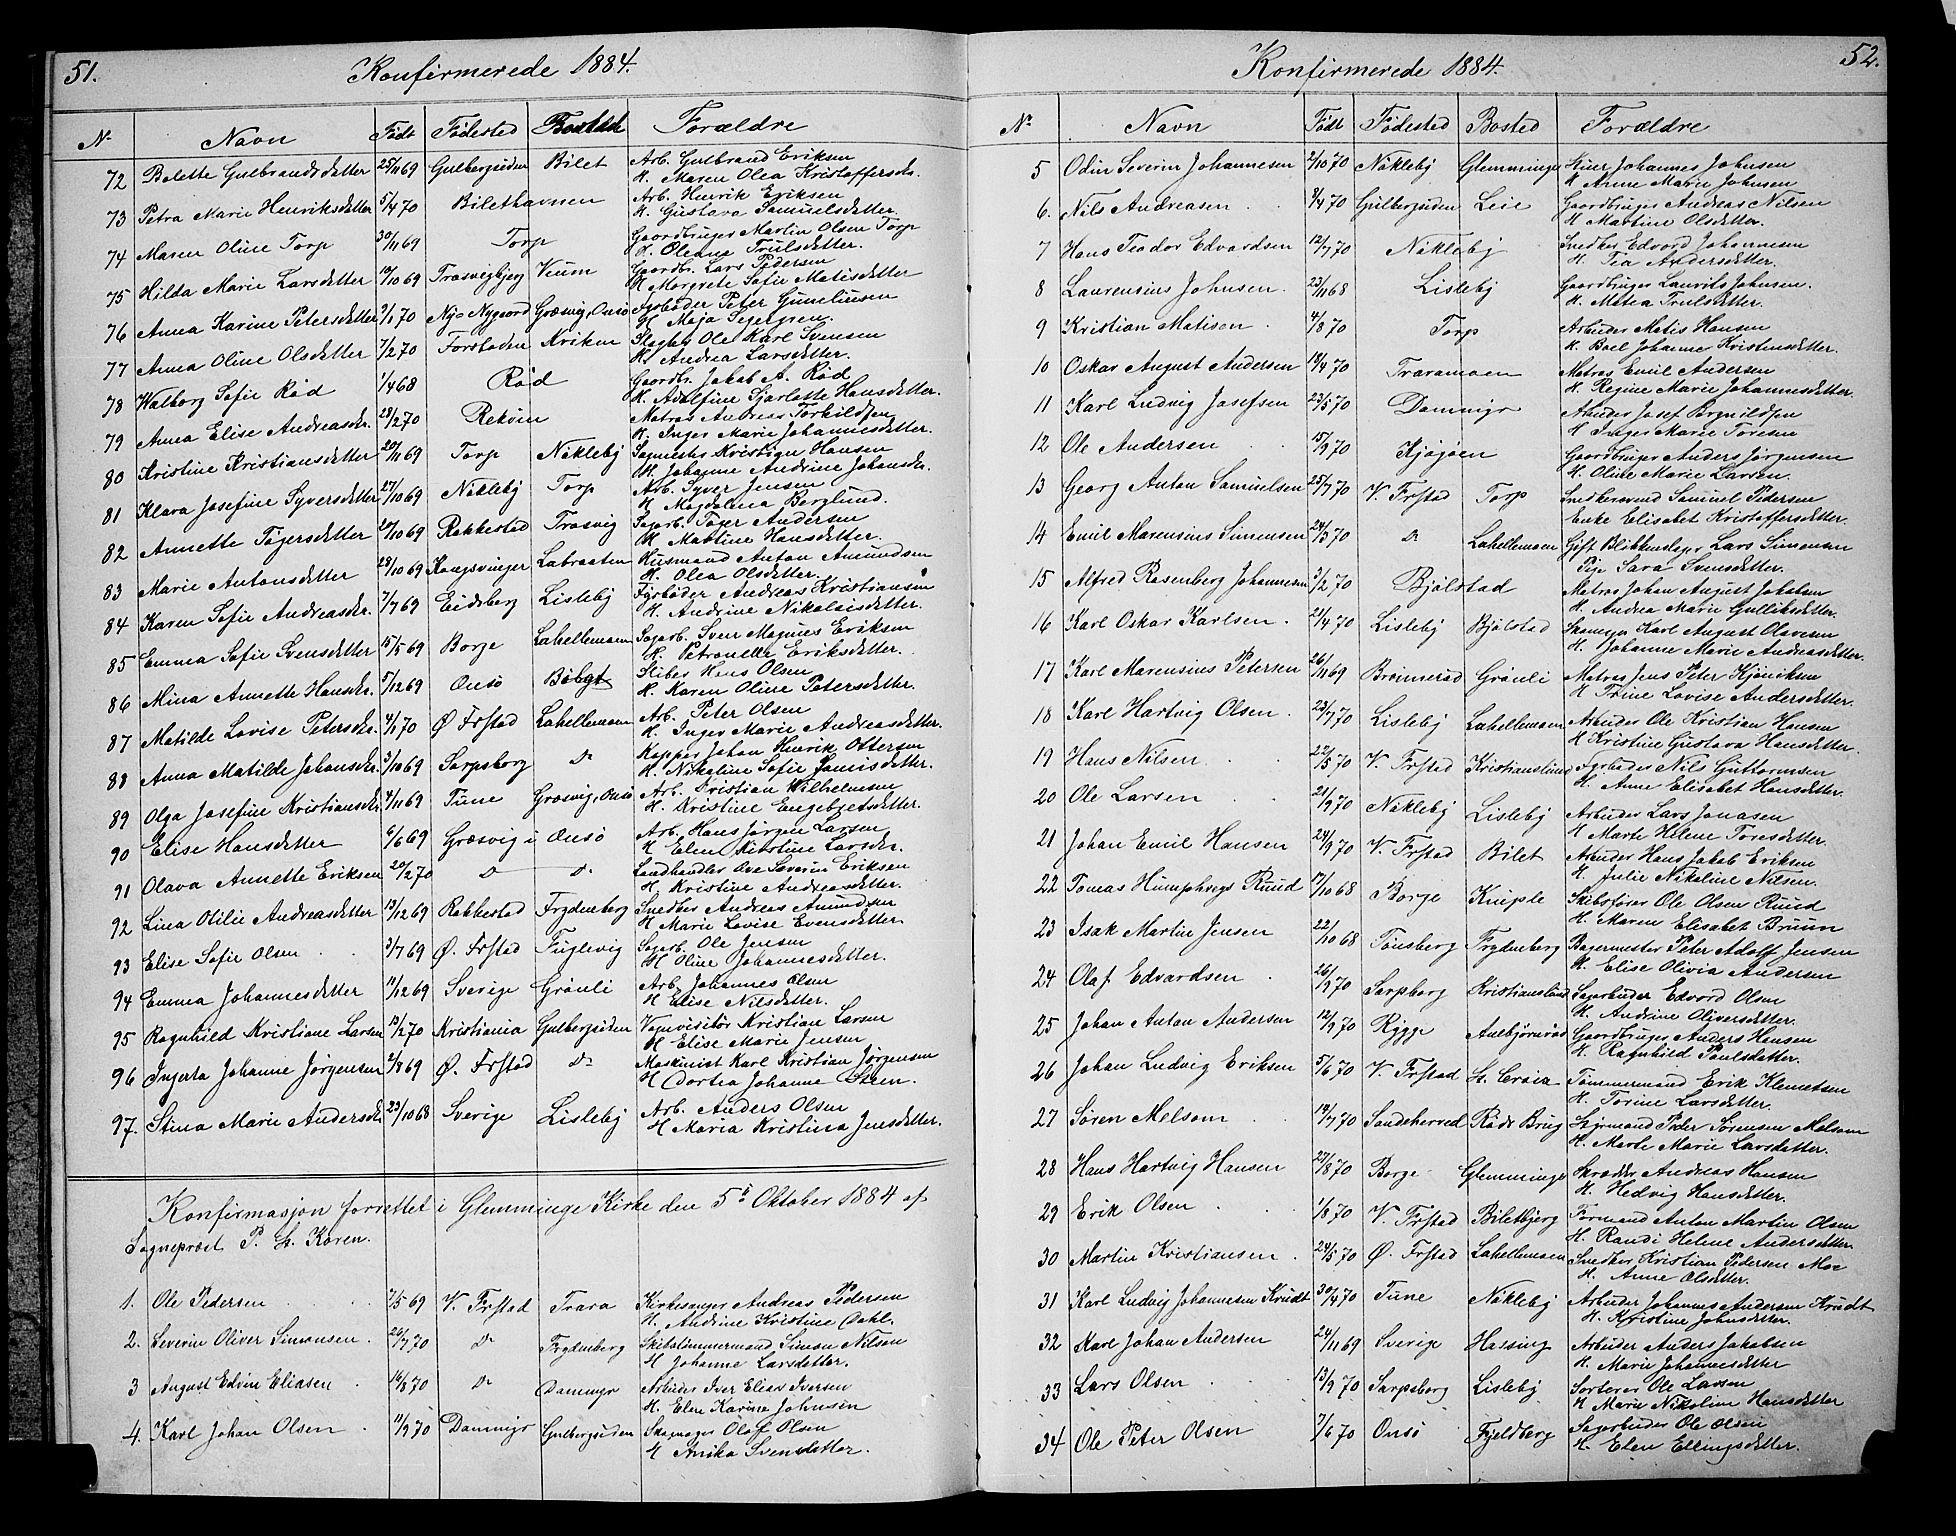 51.
Konfirmerede 1884.
No Navn Født Fødested Bosted Forældre
72 Bolette Gulbrandsdatter 25/11 69 Gulbergsiden Bilet Arb. Gulbrand Eriksen
H. Maren Olea Kristoffersdr.
73 Petra Marie Henriksdatter 5/4 70 Bilethavnen Arb. Henrik Eriksen
H. Gustava Samuelsdatter
74 Maren Oline Torp 30/11 69 Torp Gaardbruger Martin Olsen Torp
H. Oleane Trulsdatter.
75 Hilda Marie Larsdatter 10/10 69 Trosvigbjerg Veum Gaardbr. Lars Pedersen
H. Margrete Sofie Matisdatter
76 Anna Karine Petersdatter 2/1 70 Nye Nygaard Græsvig, Onsø Fyrbøder Peter
H. Maja Segergren.
77 Anna Oline Olsdatter 7/2 70 Forstaden Kviken Slagter Ole Karl Svensen
H. Andrea Larsdatter.
78 Walborg Sofie Rød 1/4 68 Rød Gaardbr. Jakob A. Rød
H. Adolfine Sjarlotte Hansdatter.
79 Anna Elise Andreasdr. 28/2 70 Rekvin Matros Andreas Torkildsen
H. Inger Marie Johannesdatter.
80 Kristine Kristiansdatter 20/11 69 Torp Nøkleby Sagmester Kristian Hansen
H. Johanne Andrine Johansdr.
81 Klara Josefine Syversdatter 27/10 69 Nøkleby Torp Arb. Syver Jensen
H. Magdalena Berglund.
82 Annette Tøgersdatter 20/10 69 Rakkestad Trosvig Sagarb. Tøger Andersen
H. Martine Hansdatter.
83 Marie Antonsdatter 28/10 69 Kongsvinger Labraaten Husmand Anton Amundsen
H. Olea Olsdatter.
84 Karen Sofie Andreasdr. 7/7 69 Eidsberg Lisleby Fyrbøder Andreas Kristiansen
H. Andrine Nikolaisdatter.
85 Emma Sofie Svensdatter 15/5 69 Borge Lahellemoen Sagarb. Sven Magnus Eriksen
H. Petronelle Eriksdatter.
86 Mina Annette Hansdr. 5/12 69 Onsø Sliber Hans Olsen
H. Karen Oline Petersdatter.
87 Matilde Lovise Petersdr. 4/1 70 Ø. Frstad Lahellemoen Arb. Peter Olsen
H. Inger Marie Andreasdatter.
88 Anna Matilde Johansdr. 3/10 69 Sarpsborg Do Kapper Johan Henrik Ottersen
H. Nikoline Sofie Jonisdatter.
89 Olga Josefine Kristiansdr. 4/11 69 Tune Græsvig, Onsø Arb. Kristian Wilhelmsen
H. Kristine Engebretsdatter.
90 Elise Hansdatter 6/6 69 Græsvig i Onsø Arb. Hans Jørgen Larsen
H. Elen Kirstine Larsdr.
91 Olava Annette Eriksen 20/2 70 Do Do Landhandler Ove Severin Eriksen
H. Kristine Andreasdatter.
92 Lina Otilie Andreasdatter 13/12 69 Rakkestad Frydenberg Snedker Andreas Amundsen
H Marie Lovise Evensdatter.
93 Elise Sofie Olsen 3/7 69 Ø. Frstad Fuglevig Sagarb. Ole Jensen
H Oline Johannesdatter.
94 Emma Johannesdatter 11/12 69 Sverige Grønli Arb. Johannes Olsen
H Elise Nilsdatter.
95 Ragnhild Kristiane Larsen 13/2 70 Kristiania Gulbergsiden Vognvisitør Kristian Larsen
H Elise Marie Jensen
96 Ingerta Johanne Jørgensen 2/8 69 Ø. Frstad Do Maskinist Karl Kristian Jørgensen
H Dortea Johanne Steen.
97. Stina Marie Andersdr. 22/10 68 Sverige Lisleby Arb. Anders Olsen
H Maria Kristina Jensdatter.
Konfirmasjon forrettet i Glemminge Kirke den 5te Oktober 1884 af
Sogneprest P. L. Koren.
1. Ole Pedersen 7/5 69 V. Frstad Trara Kirkesanger Andreas Pedersen
H. Andrine Kristine Dahl.
2. Severin Oliver Simonsen 20/7 70 Do Frydenberg Skibstømmermand Simon Nilsen
H Johanne Larsdatter.
3 August Edvin Eliasen 14/8 70 Do Dammyr Arbeider Iver Elias Iversen
H. Elen Karine Johnsen
4. Karl Johan Olsen 11/9 70 Dammyr Gulbergsiden Skomager Olof Olsen
H Anika Svensdatter.
52.
Konfirmerede 1884.
No Navn Født Fødested Bosted Forældre
5 Odin Severin Johannesen 2/10 70 Nøkleby Glemminge Kuier Johannes Johnsen
H Anne Marie Johnsen
6. Nils Andreasen 8/4 70 Gulbergsiden Leie Gaardbruger Andreas Nilsen
H Martine Olsdatter.
7 Hans Teador Edvardsen 12/7 70 Nøkleby Snedker Edvard Johannesen
H. Tea Andersdatter.
8 Laurensius Johnsen 23/11 68 Lisleby Gaardbruger Laurits Johnsen.
H. Matea Trulsdatter.
9 Kristian Matisen 4/8 70 Torp Arbeider Matis Hansen
H. Boel Johanne Kristensdatter.
10 Oskar August Andersen 18/4 70 Traramoen Matros Emil Andersen
H. Regine Marie Johannesdatter.
11 Karl Ludvig Josefsen 23/5 70 Dammyr Arbeider Josef Brynildsen
H Inger Marie Toresen
12 Ole Andersen 15/9 70 Kjøjøen Gaardbruger Anders Jørgensen
H. Oline Marie Larsen.
13 Georg Anton Samuelsen 25/7 70 V. Frstad Torp Snedkersvend Samuel Pedersen
Enke Elisabet Kristoffersdatter.
14 Emil Marensius Simensen 24/3 70 Do Lahellemoen Gift Blikkenslager Lars Simensen
Pige Sara Svensdatter.
15 Alfred Rosenberg Johannesen 3/2 70 Bjølstad Matros Johan August Jakobsen
H. Andrea Marie Gulliksdatter.
16 Karl Oskar Karlsen 21/4 70 Lisleby Bjølstad Skomager Karl August Olavesen
H. Johanne Marie Andreasdatter.
17 Karl Marensius Petersen 26/11 69 Brønnerød Grønli Matros Jens Peter Hjøriksen
H Trine Lovise Andersdatter.
18 Karl Hartvig Olsen 23/7 70 Lisleby Lahellemoen Arbeider Ole Kristian Hansen
H Kristine Gustava Hansdatter.
19 Hans Nilsen 22/5 70 V. Frstad Kristianslund Fyrbøder Nils Guttormsen
H. Anne Elisabet Hansdatter.
20 Ole Larsen 21/9 70 Nøkleby Lisleby Arbeider Lars Jonasen
H Marte Helene Toresdatter.
21 Johan Emil Hansen 24/9 70 V. Frstad Bilet Arbeider Hans Jakob Eriksen
H. Julie Nikoline Nilsen.
22 Tomas Humphreys Ruud 17/10 68 Borge Kniple Skibsfører Ole Olsen Ruud
H. Maren Elisabet Bruun
23 Isak Martin Jensen 22/10 68 Tønsberg Frydenberg Bagermester Peter Adolf Jensen
H. Elise Olivia Andersen
24 Olaf Edvardsen 26/9 70 Sarpborg Kristianslund Sagarbeider Edvard Olsen
H. Andrine Oliversdatter.
25 Johan Anton Andersen 12/9 70 Rygge Aubjørnrød Gaardbruger Anders Hansen
H. Ragnhild Paulsdatter.
26 Johan Ludvig Eriksen 5/6 70 V. Frstad St. Croix Tømmermand Erik Klemetsen
H. Torine Larsdatter.
27 Søren Melsom 14/7 70 Sandeherred Røds Brug Styrmand Peder Sørensen Melsom
H. Marte Marie Larsdatter.
28 Hans Hartvig Hansen 27/8 70 Borge Glemminge Skrædder Andreas Hansen
H. Hedvig Hansdatter.
29 Erik Olsen 1/8 70 V. Frstad Biletbjerg Formand Anton Martin Olsen
H. Randi Helene Andersdatter.
30 Martin Kristiansen 24/5 70 Ø. Frstad Lahellemoen Snedker Kristian Pedersen Moe
H. Anne Olsdatter.
31 Karl Ludvig Johannesen Krudt 30/4 70 Tune Nøkleby Arbeider Johannes Andersen Krudt
H. Kristine Johnsdatter.
32 Karl Johan Andersen 24/11 69 Sverige Hassing Arbeider Anders Jakobsen
H. Marie Johannesdatter
33 Lars Olsen 13/9 70 Sarpsborg Lisleby Sorterer Ole Larsen
H Marie Nikoline Hansdatter
34 Ole Peter Olsen 7/6 70 Onsø Fjeldberg Sagarbeider Ole Olsen
H. Elen Ellingsdatter.